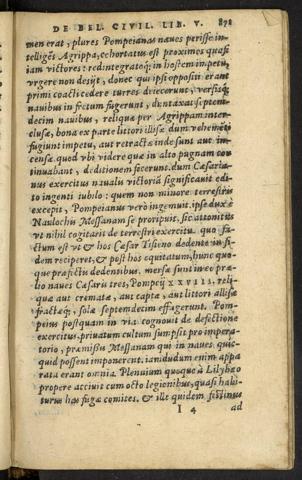 DE BEL. CIVIL. LIB. V. 878
men erat, plures Pompeianas naues perisse in-
telligẽs Agrippa, cohortatus est proximos quasi
iam victores: redintegratoq́; in hostem impetu,
vrgere non desijt, donec qui ipsi oppositi erant
primi coacti cedere turres diecerunt, versisq́;
nauibus in fretum fugerunt, duntaxat septem-
decim nauibus, reliquæ per Agrippam inter-
clusæ, bona ex parte littori illisæ dum vehemẽti
fugiunt impetu, aut retractæ inde sunt aut in-
censæ. quod vbi videre quæ in alto pugnam con
tinuabant, deditionem fecerunt. dum Cæsaria-
nus exercitus naualu victoriã significauit edi-
to ingenti iubilo: quem non minore terrestris
excepit, Pompeianus verò ingemuit. ipse dux è
Naulochis Messanam se proripuit, sic attonitus
vt nihil cogitarit de terrestri exercitu. quo fa-
ctum est vt & hos Cæsar Tiseno dedente in fi-
dem reciperet, & post hos equitatum, hunc quo-
que præfectis dedentibus. mersæ sunt in eo præ-
lio naues Cæsaris tres, Pompeij XXVIII, reli-
quæ aut crematæ, aut captæ, aut littori allisæ
fractæq́;, solæ septemdecim effugerunt. Pom-
peius postquam in via cognouit de defectione
exercitus, priuatum cultum sumpsit pro impera-
torio, præmisitq́; Messanam qui in naues, quic-
quid possent imponerent. iandudum enim appa
rata erant omnia. Plenuium quoque à Lilybæo
propere acciuit cum octo legionibus, quasi habi-
turus has fugæ comites. & ille quidem festinus
I 4 ad